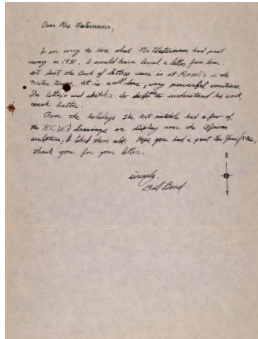 Dear Mrs. Westermann,
I am sorry to hear that Mr. Westermann had passed
away in 1981. I would have loved a letter from him
at last the book of letters came in at Rizzoli's in the
Water Tower. It is a well done, very powerful
The letters and sketches to understand his work
much better.
Over the holidays the Art Institute had a few of
the drawings on display near the African
sculpture, I liked them all. Hope you had a great
thank you for your letter.
sincerely,
Bill Bond